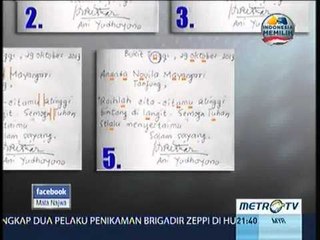 2.
3.
Ani Yudhoyono
INDONESIA
MEMILIH
gi, 29 Oktober 2013
Mayangsari
-citamu
langit. Semoga Tuhan
Salam sayang,
Ani Yudhoyono
29 Oktober 2013
Ananda Novila Mayangsari
Tanjung,
Raihlah cita-citamu
bintang di langit. Semoga Tuhan
selalu menyertaimu
Salam sayang,
Ani Yudhoyono
5.
facebook
Mata Najwa
METRO TV
NGKAP DUA PELAKU PENIKAMAN BRIGADIR ZEPPI DI HU
21:40
MYR